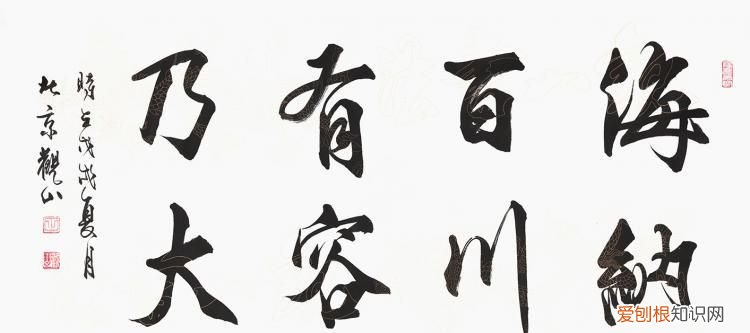 海納
百川
有容
乃大
時在戊戌夏月
北京觀山
爱刨根知识网